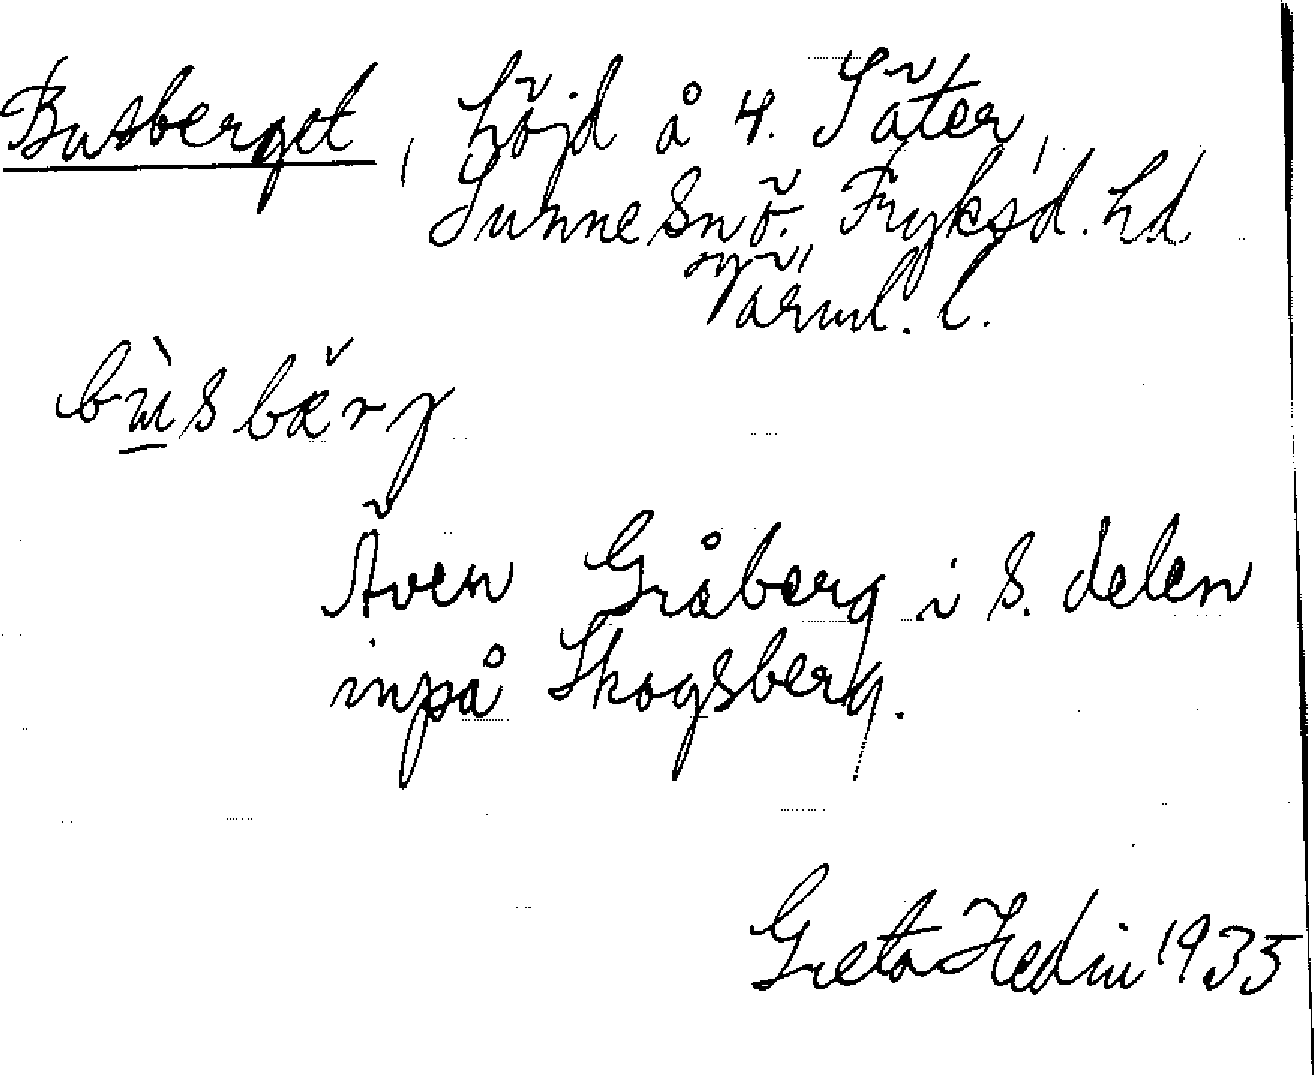 Busberget, höjd å 4. Säter,
Sunne snö. Fryksd. hd
Värml. l.
bùsbærj
Även Gråberg i s. delen
inpå Skogsberg.
Greta Hedin 1935